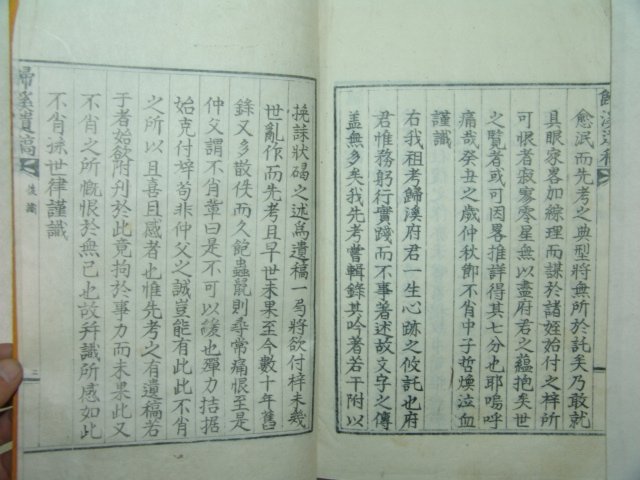 愈泯而先考之典型將無所於託矣乃敢就
具眼家畧加綜理而謀於諸姪始付之梓所
可恨者寂寥零星無以盡府君之蘊抱矣世
之覽者或可因畧推詳得其七分也耶嗚呼
痛哉癸丑之歲仲秋節不肖中子哲煥泣血
謹識
右我祖考歸溪府君一生心跡之攸託也府
君惟務躬行實踐而不事著述故文字之傳
盖無多矣我先考嘗輯錄其吟著若干附以
挽誄狀碣之述爲遺稿一局將欲付梓未幾
世亂作而先考且早世未果至今數十年舊
錄又多散佚而久飽蟲鼠則尋常痛恨至是
仲父謂不肖輩曰是不可以緩也殫力拮据
始克付梓苟非仲父之誠豈能有此此不肖
之所以且喜且感者也惟先考之有遺稿若
于者始欲附刋於此竟拘於事力而未果此又
不肖之所慨恨於無已也故幷識所感如此
不肖孫世律謹識
歸溪遺稿
後識
二